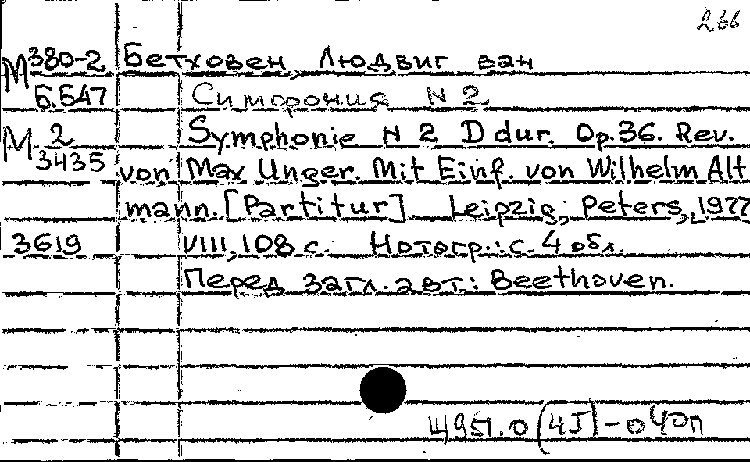 266
М 380-2 Бетховен, Людвиг ван
Б.547 Симфония N 2
М 2 Symphonie N 2 D dur. Op. 36. Rev.
3435 von Max Unger. Mit Einf. von Wilhelm Alt
mann. [Partitur] Leipzig, Peters, 1977
3619 VIII, 108 с. Нотогр.: с. 4 обл.
Перед загл. авт.: Beethoven.
Щ951.0(4Г)-04оп